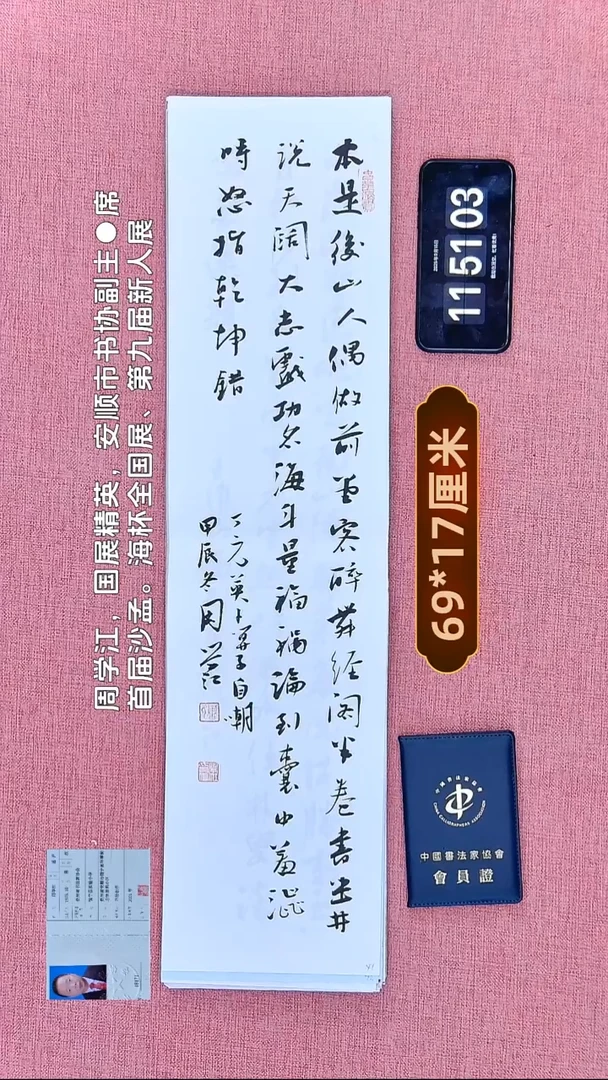 本是後山人偶做前堂客醉舞经阁半卷書坐井
说天阔大志戲功名海斗量福禍論到囊中羞澁
時怒指乾坤錯
丁元英卜算子自嘲
甲辰冬周学江
周学江，国展精英，安顺市书协副主●席
首届沙孟。海杯全国展、第九届新人展
11 51 03
69*17厘米
中國書法家協會
CHINA CALLIGRAPHERS ASSOCIATION
中國書法家協會
會員證